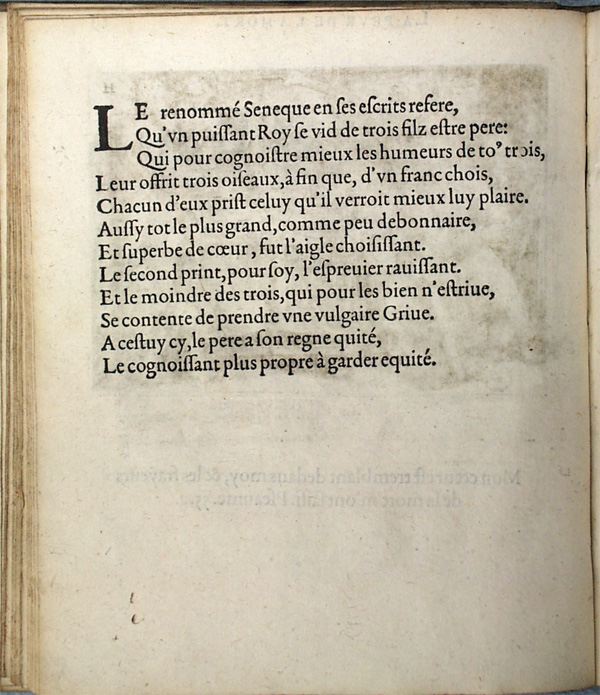 LE renommé Seneque en ſes eſcrits refere,
Qu'vn puiſſant Roy ſe vid de trois filz eſtre pere:
Qui pour cognoiſtre mieux les humeurs de to' trois,
Leur offrit trois oiſeaux, à fin que, d'vn franc chois,
Chacun d'eux priſt celuy qu'il verroit mieux luy plaire.
Auſſy tot le plus grand, comme peu debonnaire,
Et ſuperbe de cœur, fut l'aigle choiſiſſant.
Le ſecond print, pour ſoy, l'eſpreuier rauiſſant.
Et le moindre des trois, qui pour les bien n'eſtriue,
Se contente de prendre vne vulgaire Griue.
A ceſtuy cy, le pere a ſon regne quité,
Le cognoiſſant plus propre à garder equité.